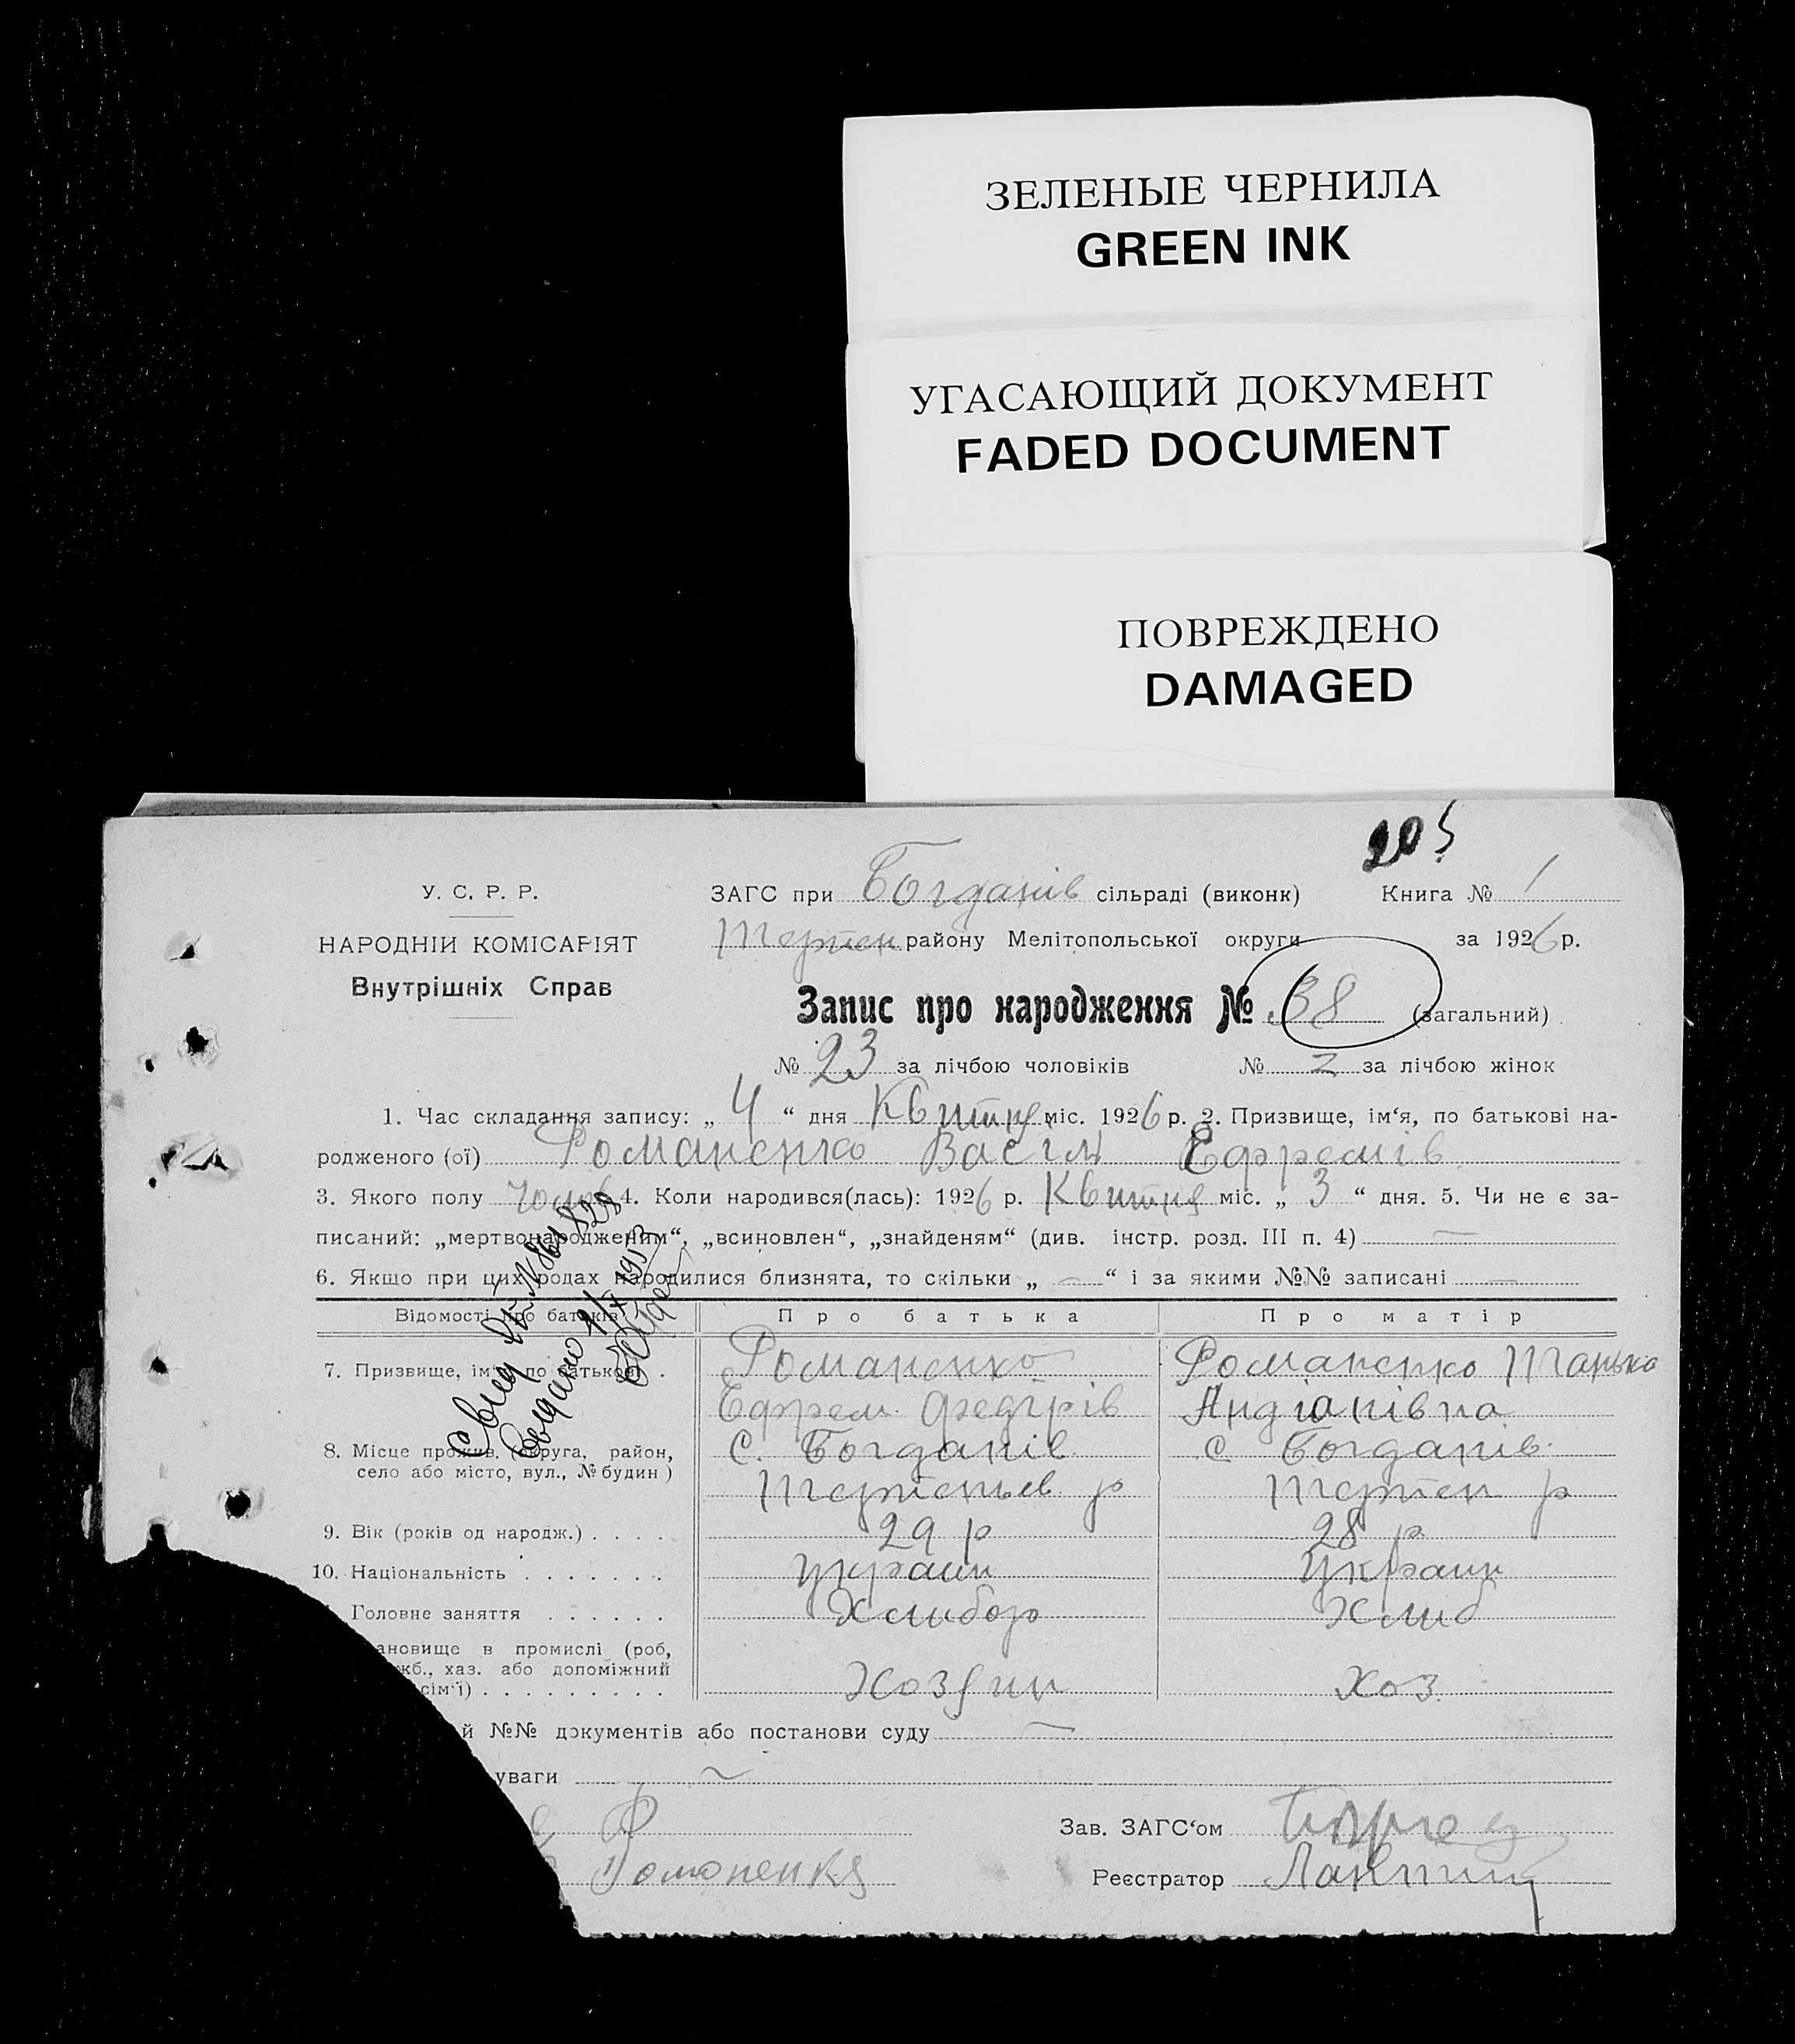 ЗЕЛЕНЫЕ ЧЕРНИЛА
GREEN INK
УГАСАЮЩИЙ ДОКУМЕНТ
FADED DOCUMENT
ПОВРЕЖДЕНО
DAMAGED
205
У. С. Р. Р.
НАРОДНІЙ КОМІСАРІЯТ
Внутрішніх Справ
ЗАГС при Богданів сільраді (виконк) Книга № 1
Терпен району Мелітопольської округи за 1926 р.
Запис про народження № 38 (загальний)
№ 23 за лічбою чоловіків № за лічбою жінок
1. Час складання запису: „ 4 “ дня Квитня міс. 1926 р. 2. Призвище, ім‘я, по батькові на-
родженого (ої) Романенко Васіль Ефремів
3. Якого полу 4. Коли народився(лась): 1926 р. Квитня міс. „ 3 “ дня. 5. Чи не є за-
писаний: „мертвонародженим“, „всиновлен“, „знайденям“ (див. інстр. розд. III п. 4) —
6. Якщо при цих родах народилися близнята, то скільки „ — “ і за якими №№ записані —
Відомості про батьків Про батька Про матір
7. Призвище, ім‘я, по батькові . Романенко Романенко Марько
Ефрем Федірів Андіанівна
8. Місце прожив. (округа, район, С. Богданів с Богданів
село або місто, вул., № будин ) Терпеньев р Терпен р
9. Вік (років од народж.) . . . . 29 р 28 р
10. Національність . . . . . . . украин украин
Головне заняття . . . . . . Хлибор Хлиб
ановище в промислі (роб,
жб., хаз. або допоміжний
сім‘ї) . . . . . . . . . Хозяин хоз
й №№ документів або постанови суду —
уваги ~
Р Зав. ЗАГС‘ом
Романенкя Реєстратор